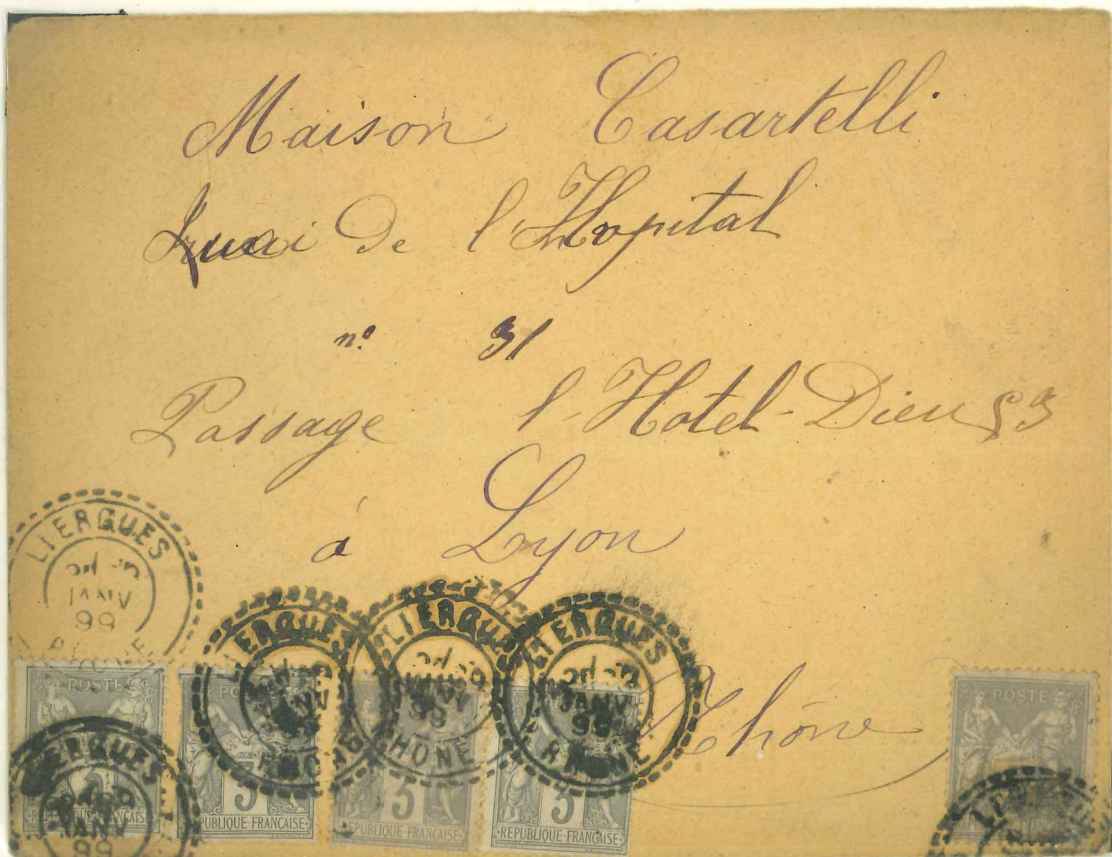 Maison Casartelli
Quai De l'Hopital
n° 31
Passage l-Hotel-Dieu 53
à Lyon
Rhône
LIERGUES
JANV
99
RHONE
LIERGUES
JANV
RHONE
LIERGUES
99
RHONE
LIERGUES
JANV
99
RHONE
POSTE
LIERGUES
JANV
99
3
REPUBLIQUE-FRANÇAISE
3
REPUBLIQUE-FRANÇAISE
3
REPUBLIQUE-FRANÇAISE
POSTE